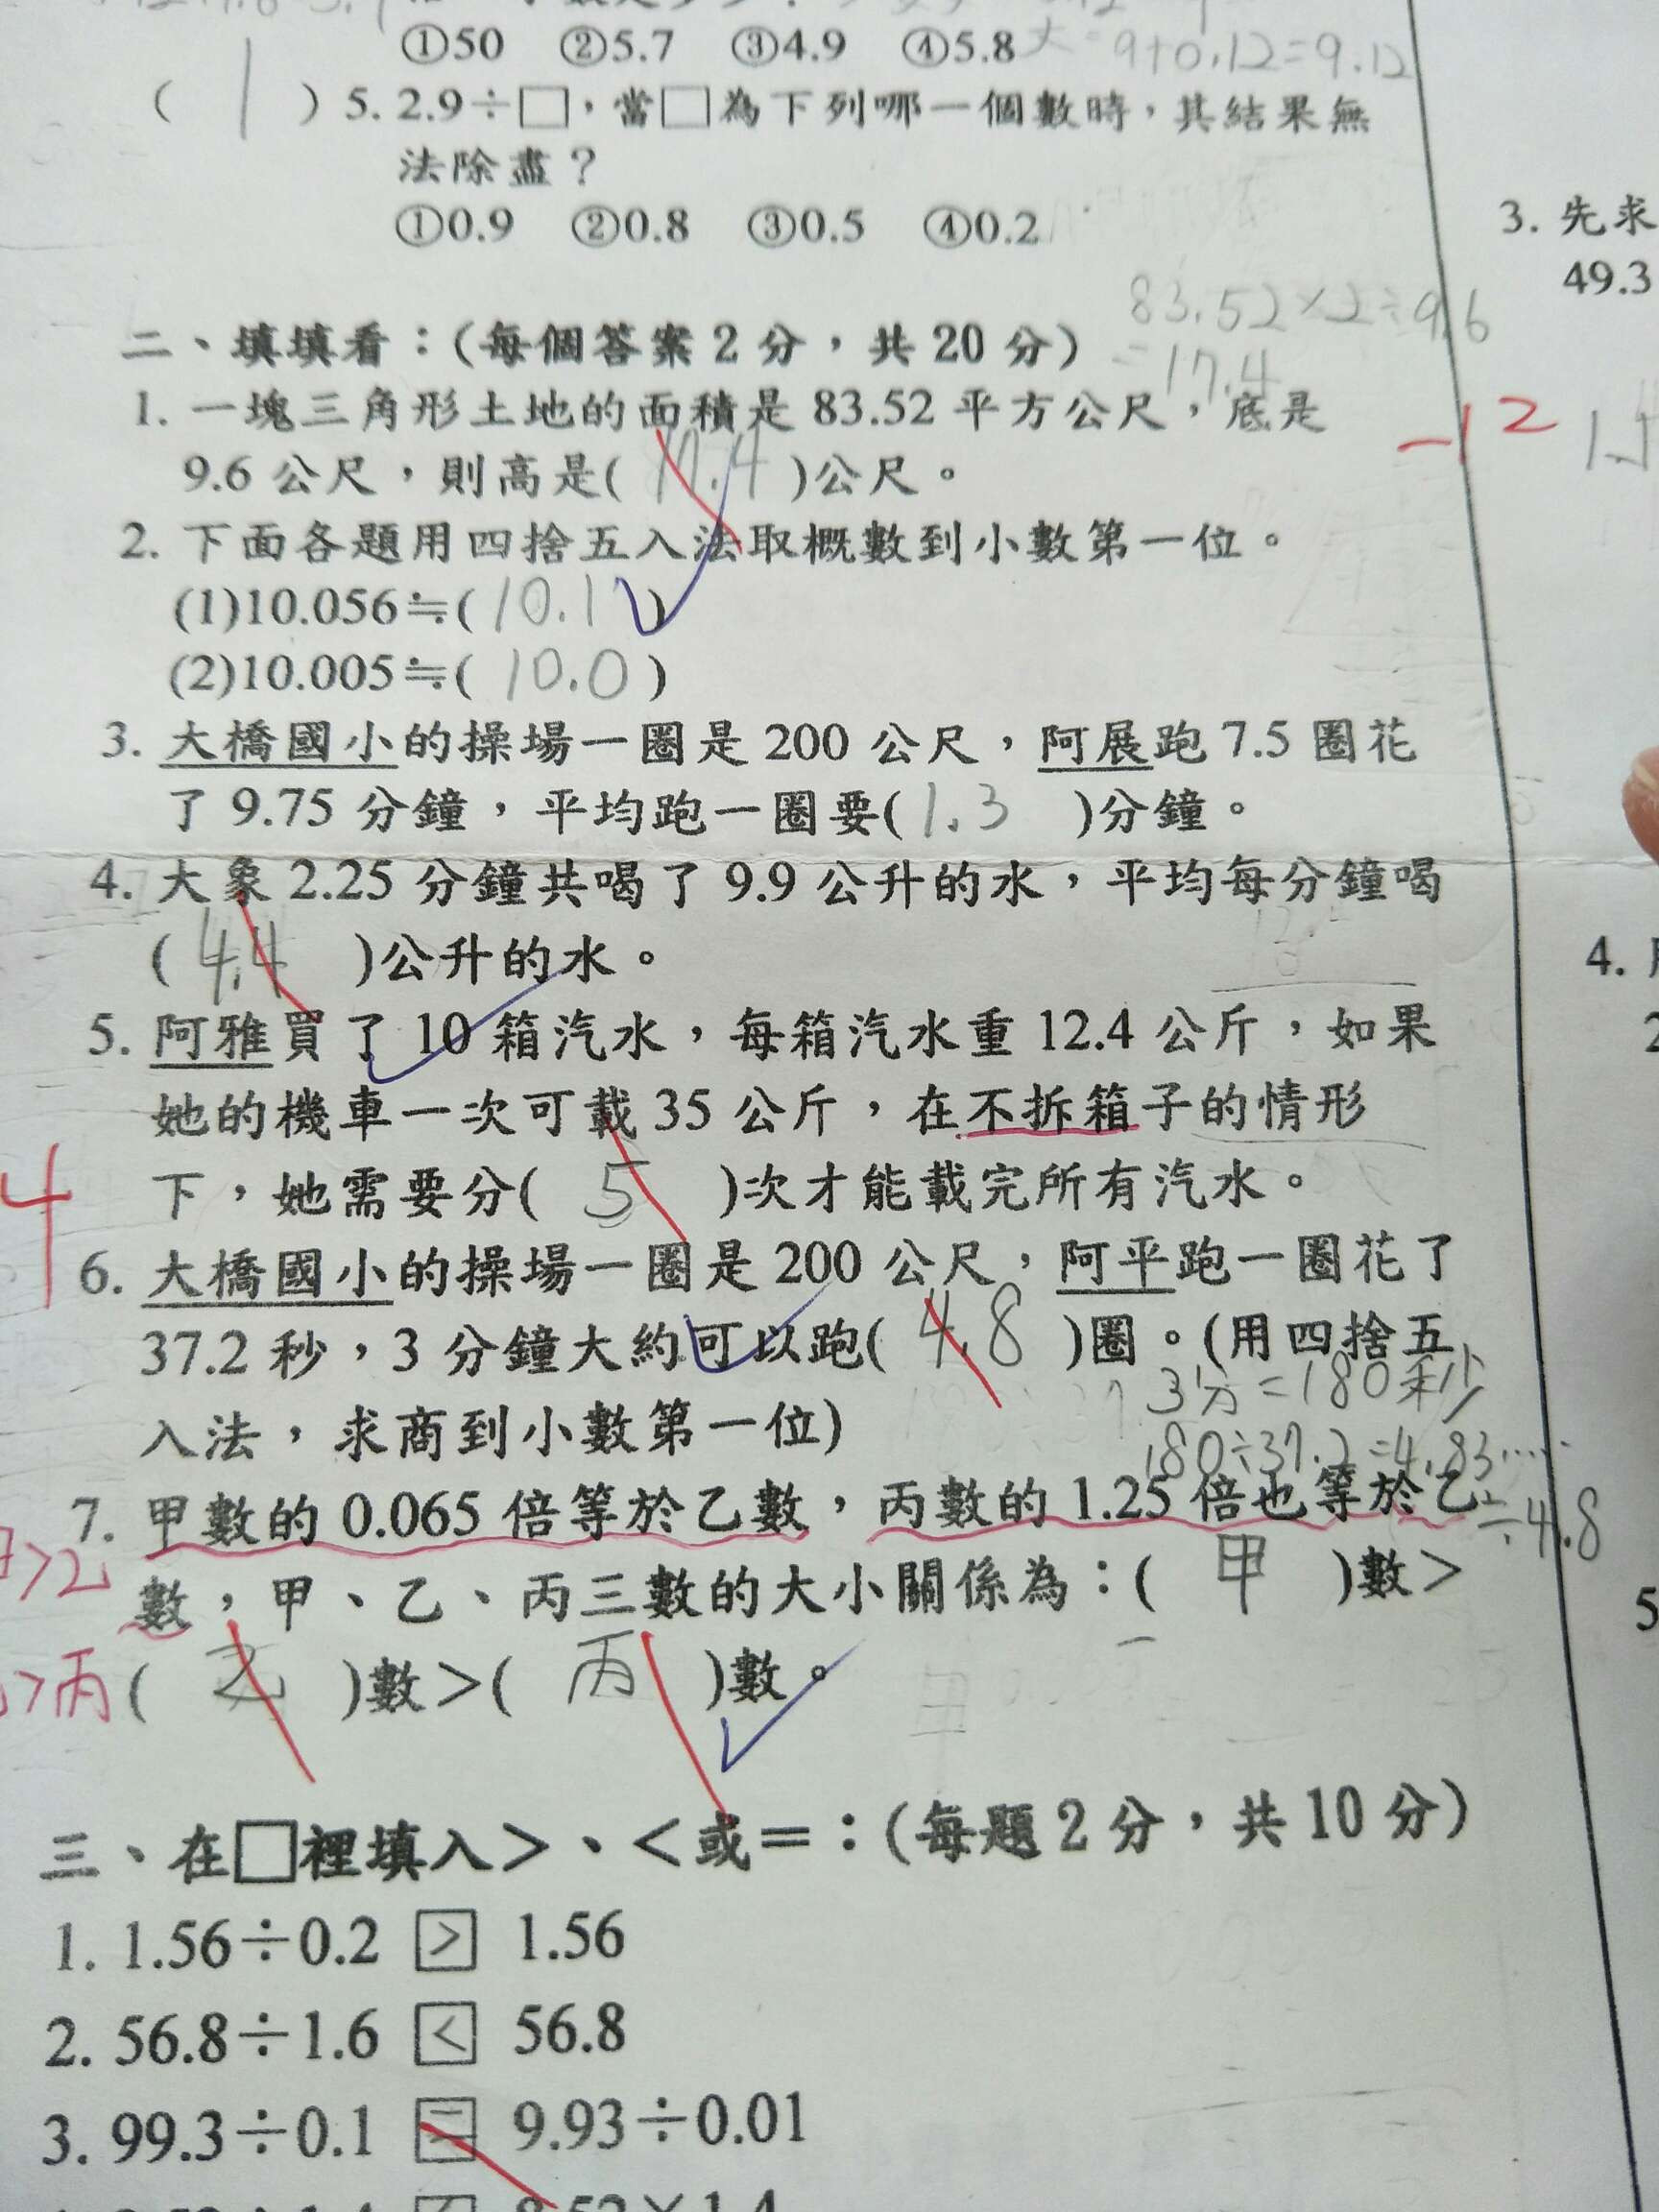 ①50 ②5.7 ③4.9 ④5.8 大 9+0.12=9.12
( 1 ) 5. 2.9÷□，當□為下列哪一個數時，其結果無
法除盡？
①0.9 ②0.8 ③0.5 ④0.2
83.52×2÷9.6
=17.4
二、填填看：(每個答案 2 分，共 20 分)
1. 一塊三角形土地的面積是 83.52 平方公尺，底是
9.6 公尺，則高是( 17.4 )公尺。
2. 下面各題用四捨五入法取概數到小數第一位。
(1)10.056≒( 10.1 )
(2)10.005≒( 10.0 )
3. 大橋國小的操場一圈是 200 公尺，阿展跑 7.5 圈花
了 9.75 分鐘，平均跑一圈要( 1.3 )分鐘。
4. 大象 2.25 分鐘共喝了 9.9 公升的水，平均每分鐘喝
( 4.4 )公升的水。
5. 阿雅買了 10 箱汽水，每箱汽水重 12.4 公斤，如果
她的機車一次可載 35 公斤，在不拆箱子的情形
下，她需要分( 5 )次才能載完所有汽水。
6. 大橋國小的操場一圈是 200 公尺，阿平跑一圈花了
37.2 秒，3 分鐘大約可以跑( 4.8 )圈。(用四捨五
入法，求商到小數第一位)
3分=180秒
180÷37.2=4.83……
≒4.8
7. 甲數的 0.065 倍等於乙數，丙數的 1.25 倍也等於乙
數，甲、乙、丙三數的大小關係為：( 甲 )數＞
( 乙 )數＞( 丙 )數。
>乙
>丙
4
三、在□裡填入＞、＜或＝：(每題 2 分，共 10 分)
1. 1.56÷0.2 > 1.56
2. 56.8÷1.6 < 56.8
3. 99.3÷0.1 = 9.93÷0.01
3. 先求
49.3
-12
4.
2
5